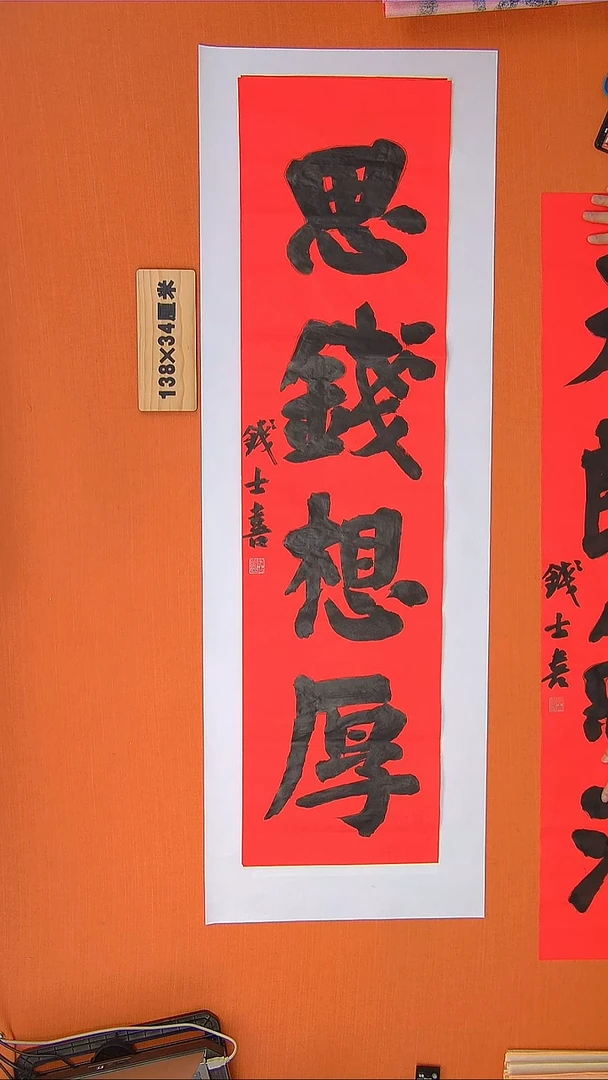 思錢想厚
錢士喜
138×34厘米
錢士喜